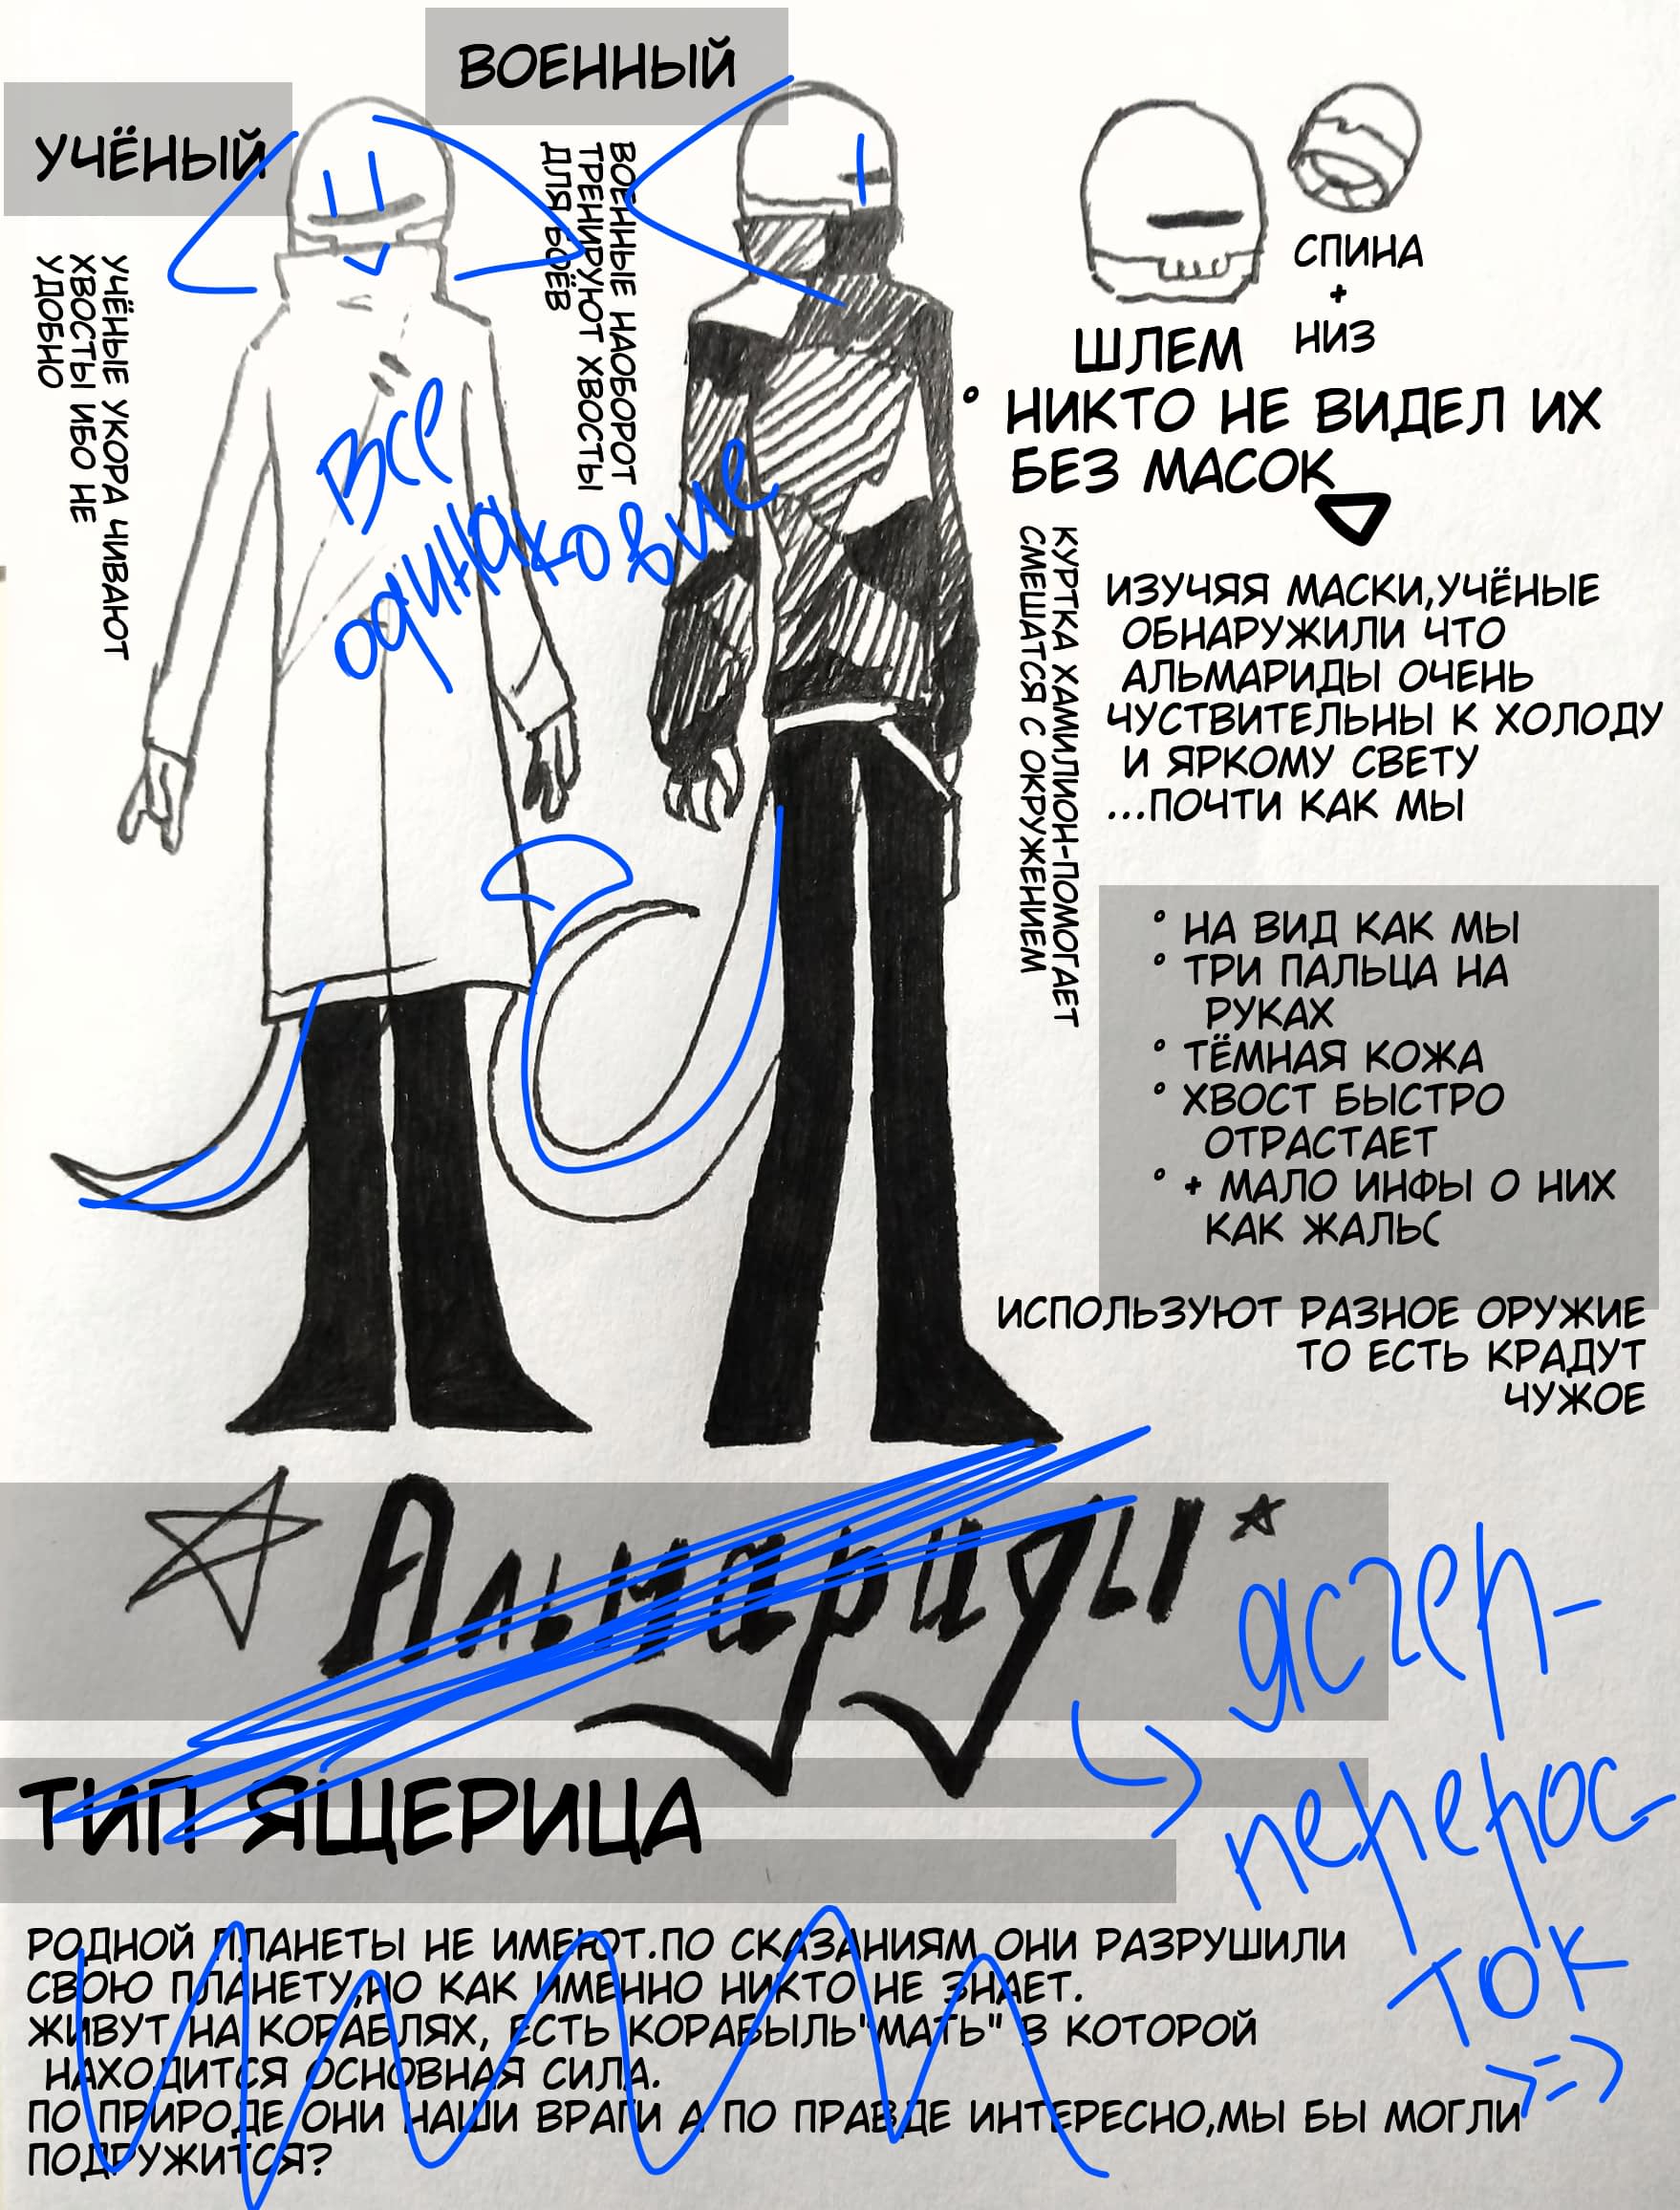 ВОЕННЫЙ
УЧЁНЫЙ
УЧЁНЫЕ УКОРА ЧИВАЮТ
ХВОСТЫ ИБО НЕ
УДОБНО
ВОЕННЫЕ НАОБОРОТ
ТРЕНИРУЮТ ХВОСТЫ
ДЛЯ БОЁВ
Все
одинаковые
СПИНА
+
НИЗ
ШЛЕМ
° НИКТО НЕ ВИДЕЛ ИХ
БЕЗ МАСОК
КУРТКА ХАМИЛИОН-ПОМОГАЕТ
СМЕШАТСЯ С ОКРУЖЕНИЕМ
ИЗУЧЯЯ МАСКИ,УЧЁНЫЕ
ОБНАРУЖИЛИ ЧТО
АЛЬМАРИДЫ ОЧЕНЬ
ЧУСТВИТЕЛЬНЫ К ХОЛОДУ
И ЯРКОМУ СВЕТУ
...ПОЧТИ КАК МЫ
° НА ВИД КАК МЫ
° ТРИ ПАЛЬЦА НА
РУКАХ
° ТЁМНАЯ КОЖА
° ХВОСТ БЫСТРО
ОТРАСТАЕТ
° + МАЛО ИНФЫ О НИХ
КАК ЖАЛЬ(
ИСПОЛЬЗУЮТ РАЗНОЕ ОРУЖИЕ
ТО ЕСТЬ КРАДУТ
ЧУЖОЕ
Альмариды
ТИП ЯЩЕРИЦА
перерос-
ток
>=)
РОДНОЙ ПЛАНЕТЫ НЕ ИМЕЮТ.ПО СКАЗАНИЯМ ОНИ РАЗРУШИЛИ
СВОЮ ПЛАНЕТУ,НО КАК ИМЕННО НИКТО НЕ ЗНАЕТ.
ЖИВУТ НА КОРАБЛЯХ, ЕСТЬ КОРАБЫЛЬ"МАТЬ" В КОТОРОЙ
НАХОДИТСЯ ОСНОВНАЯ СИЛА.
ПО ПРИРОДЕ ОНИ НАШИ ВРАГИ А ПО ПРАВДЕ ИНТЕРЕСНО,МЫ БЫ МОГЛИ
ПОДРУЖИТСЯ?